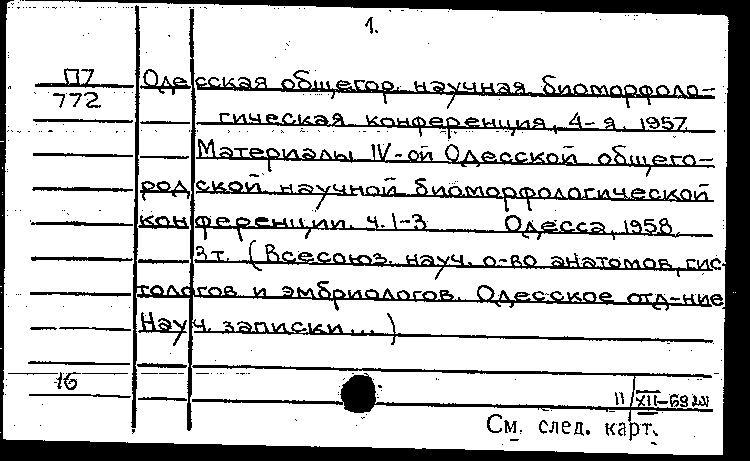 1.
П7 Одесская общегор. научная биоморфоло-
772
гическая конференция, 4-я, 1957
Материалы IV-ой Одесской общего-
родской научной биоморфологической
конференции. ч. 1-3 Одесса, 1958.
3т. (Всесоюз. науч. о-во анатомов, гис-
тологов и эмбриологов. Одесское отд-ние
Науч. записки ... )
16
11/XII-69
См. след. карт.